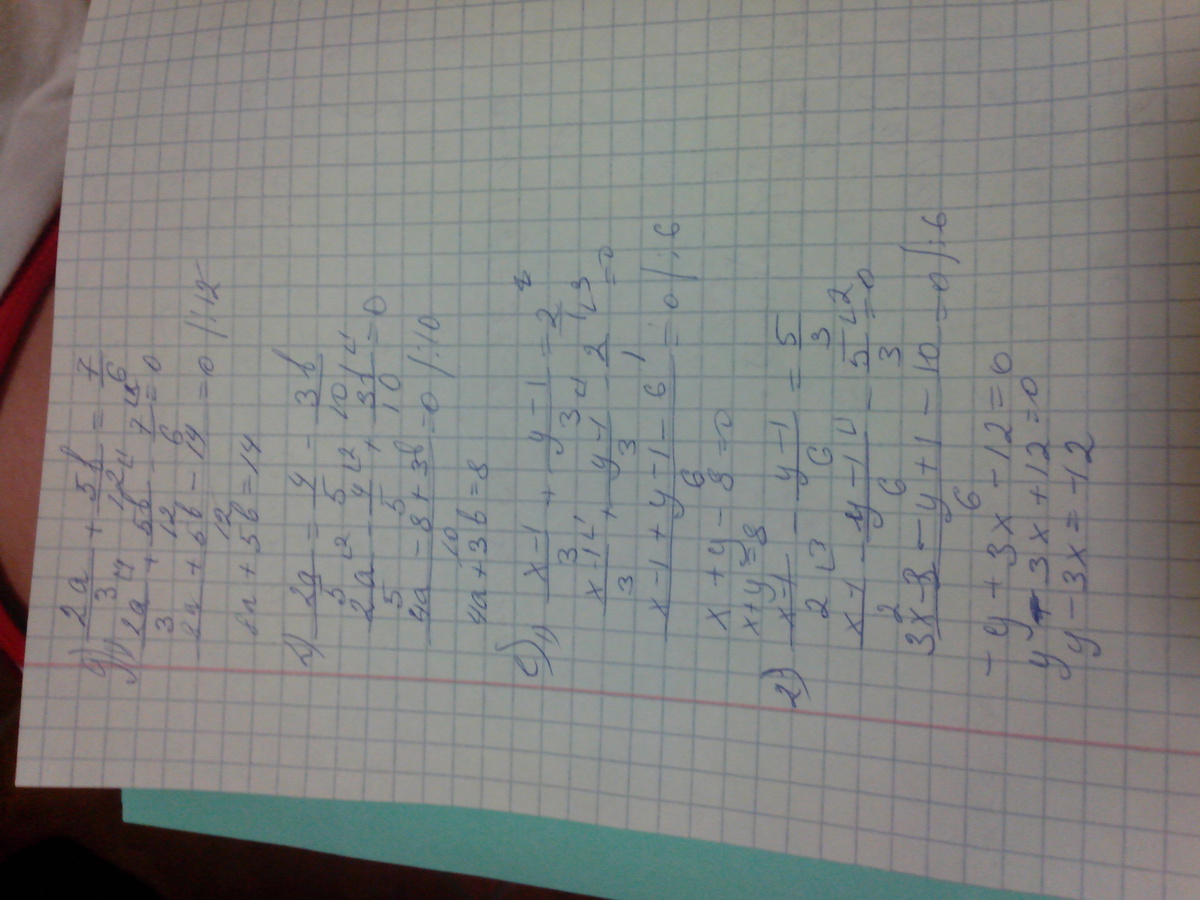 2a/3 + 5b/12 = 7/6
1) 2a/3 + 5b/12 - 7/6 = 0
+ 5b - 14 / 12 = 0 | :12
+ 5b = 14
2) 2a/5 = 4/5 - 3b/10
2a/5 - 4/5 + 3b/10 = 0
4a - 8 + 3b / 10 = 0 | :10
4a + 3b = 8
1) x-1/3 + y-1/3 = 2
x-1/3 + y-1/3 - 2 = 0
x-1 + y-1 - 6 = 0 | :6
x + y - 8 = 0
x + y = 8
2) x-1/2 - y-1/6 = 5/3
x-1/2 - y-1/6 - 5/3 = 0
3x-3 - y+1 - 10 / 6 = 0 | :6
- y + 3x - 12 = 0
y - 3x + 12 = 0
y - 3x = -12